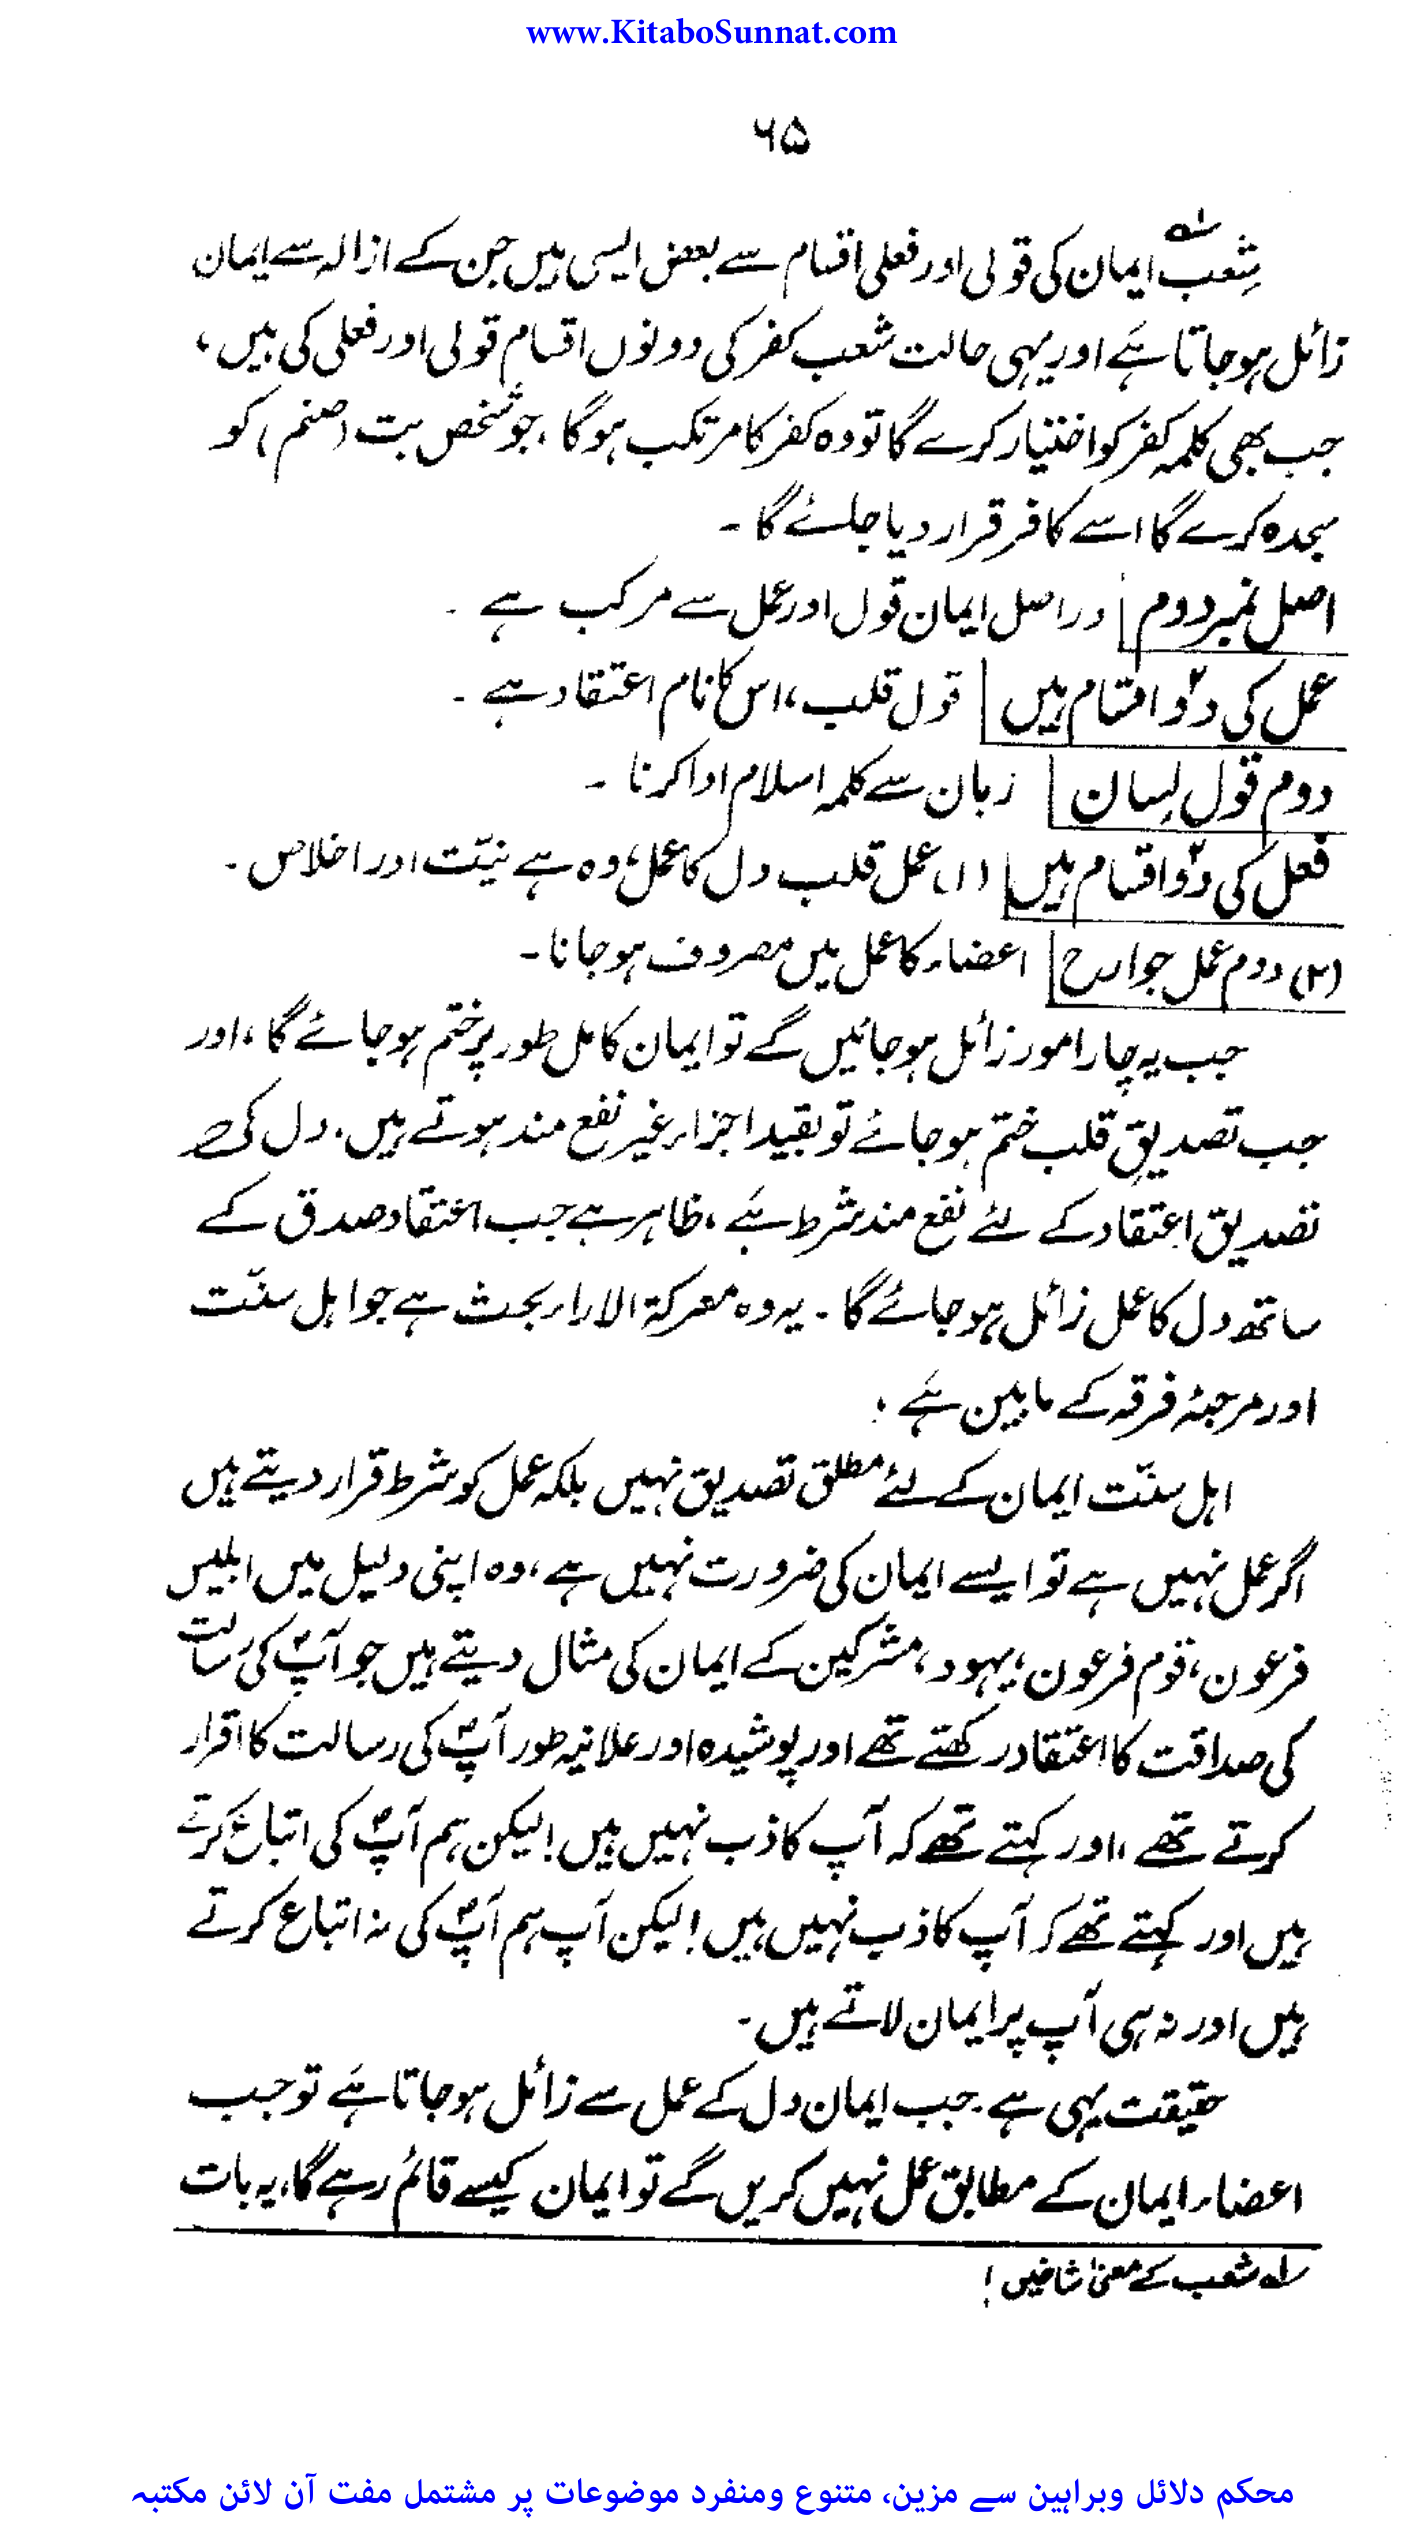 www.KitaboSunnat.com
۶۵
شعب؎۱ ایمان کی قولی اور فعلی اقسام سے بعض ایسی ہیں جن کے ازالہ سے ایمان
زائل ہو جاتا ہے اور یہی حالت شعب کفر کی دونوں اقسام قولی اور فعلی کی ہیں،
جب بھی کلمہ کفر کو اختیار کرے گا تو وہ کفر کا مرتکب ہو گا، جو شخص بت (صنم) کو
سجدہ کرے گا اسے کافر قرار دیا جائے گا ۔
اصل نمبر دوم دراصل ایمان قول اور عمل سے مرکب ہے ۔
عمل کی دو۲ اقسام ہیں قول قلب، اس کا نام اعتقاد ہے ۔
دوم قول لِسان زبان سے کلمہ اسلام ادا کرنا ۔
فعل کی دو۲ اقسام ہیں (۱) عمل قلب دل کا عمل، وہ ہے نیّت اور اخلاص ۔
(۲) دوم عمل جوارح اعضاء کا عمل میں مصروف ہو جانا ۔
جب یہ چار امور زائل ہو جائیں گے تو ایمان کامل طور پر ختم ہو جائے گا، اور
جب تصدیقِ قلب ختم ہو جائے تو بقیہ اجزاء غیر نفع مند ہوتے ہیں۔ دل کی
تصدیق اعتقاد کے لئے نفع مند شرط ہے، ظاہر ہے جب اعتقاد صدق کے
ساتھ دل کا عمل زائل ہو جائے گا ۔ یہ وہ معرکۃ الاراء بحث ہے جو اہل سنّت
اور مرجئہ فرقہ کے مابین ہے ،
اہل سنّت ایمان کے لئے مطلق تصدیق نہیں بلکہ عمل کو شرط قرار دیتے ہیں
اگر عمل نہیں ہے تو ایسے ایمان کی ضرورت نہیں ہے، وہ اپنی دلیل میں ابلیس
فرعون، قوم فرعون، یہود، مشرکین کے ایمان کی مثال دیتے ہیں جو آپؐ کی رسالت
کی صداقت کا اعتقاد رکھتے تھے اور پوشیدہ اور علانیہ طور آپؐ کی رسالت کا اقرار
کرتے تھے، اور کہتے تھے کہ آپ کاذب نہیں ہیں! لیکن ہم آپؐ کی اتباع کرتے
ہیں اور کہتے تھے کہ آپ کاذب نہیں ہیں! لیکن آپ ہم آپؐ کی نہ اتباع کرتے
ہیں اور نہ ہی آپ پر ایمان لاتے ہیں۔
حقیقت یہی ہے ۔ جب ایمان دل کے عمل سے زائل ہو جاتا ہے تو جب
اعضاء ایمان کے مطابق عمل نہیں کریں گے تو ایمان کیسے قائم رہے گا، یہ بات
؎۱ شعب کے معنیٰ شاخیں !
محکم دلائل وبراہین سے مزین، متنوع ومنفرد موضوعات پر مشتمل مفت آن لائن مکتبہ